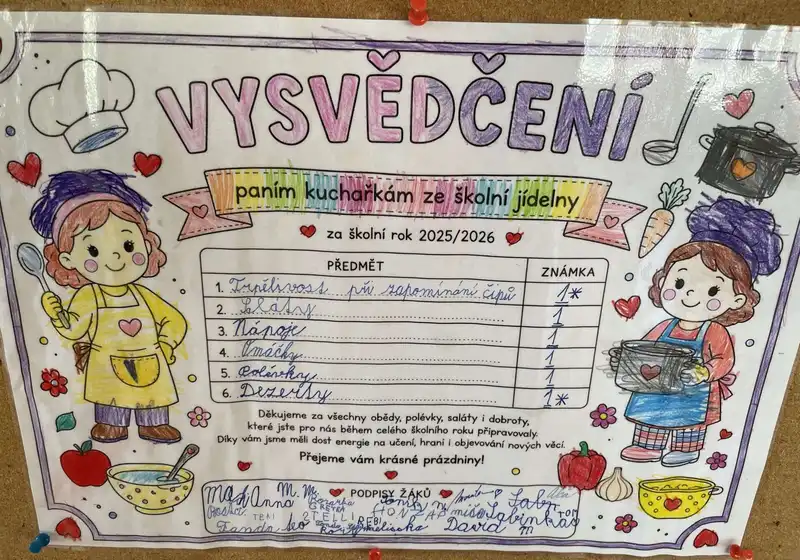 VYSVĚDČENÍ
paním kuchařkám ze školní jídelny
za školní rok 2025/2026
PŘEDMĚT ZNÁMKA
1. Trpělivost při zapomínání čipů 1*
2. Saláty 1
3. Nápoje 1
4. Omáčky 1
5. Polévky 1
6. Dezerty 1*
Děkujeme za všechny obědy, polévky, saláty i dobroty,
které jste pro nás během celého školního roku připravovaly.
Díky vám jsme měli dost energie na učení, hraní i objevování nových věcí.
Přejeme vám krásné prázdniny!
PODPISY ŽÁKŮ
Max Anna M. M.
GRETA HONZA
STELLI
Fanda Leo David